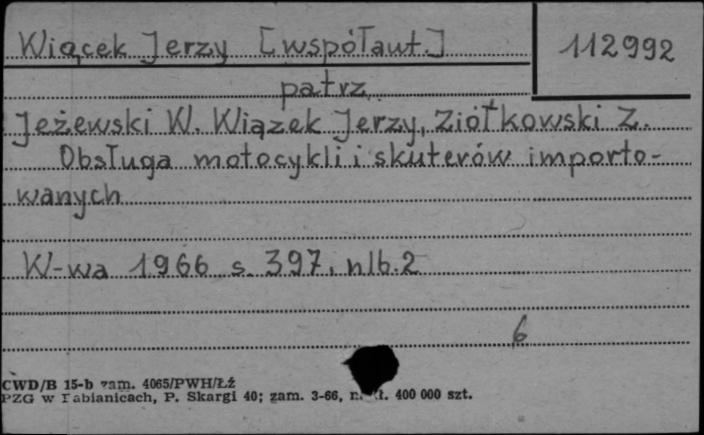 Wiącek Jerzy [współaut.]
112992
patrz
Jeżewski W. Wiązek Jerzy, Ziółkowski Z.
Obsługa motocykli i skuterów importo-
wanych
W-wa 1966 s. 397, nlb.2
6
CWD/B 15-b zam. 4065/PWH/ŁŹ
PZG w Pabianicach, P. Skargi 40; zam. 3-66, 400 000 szt.